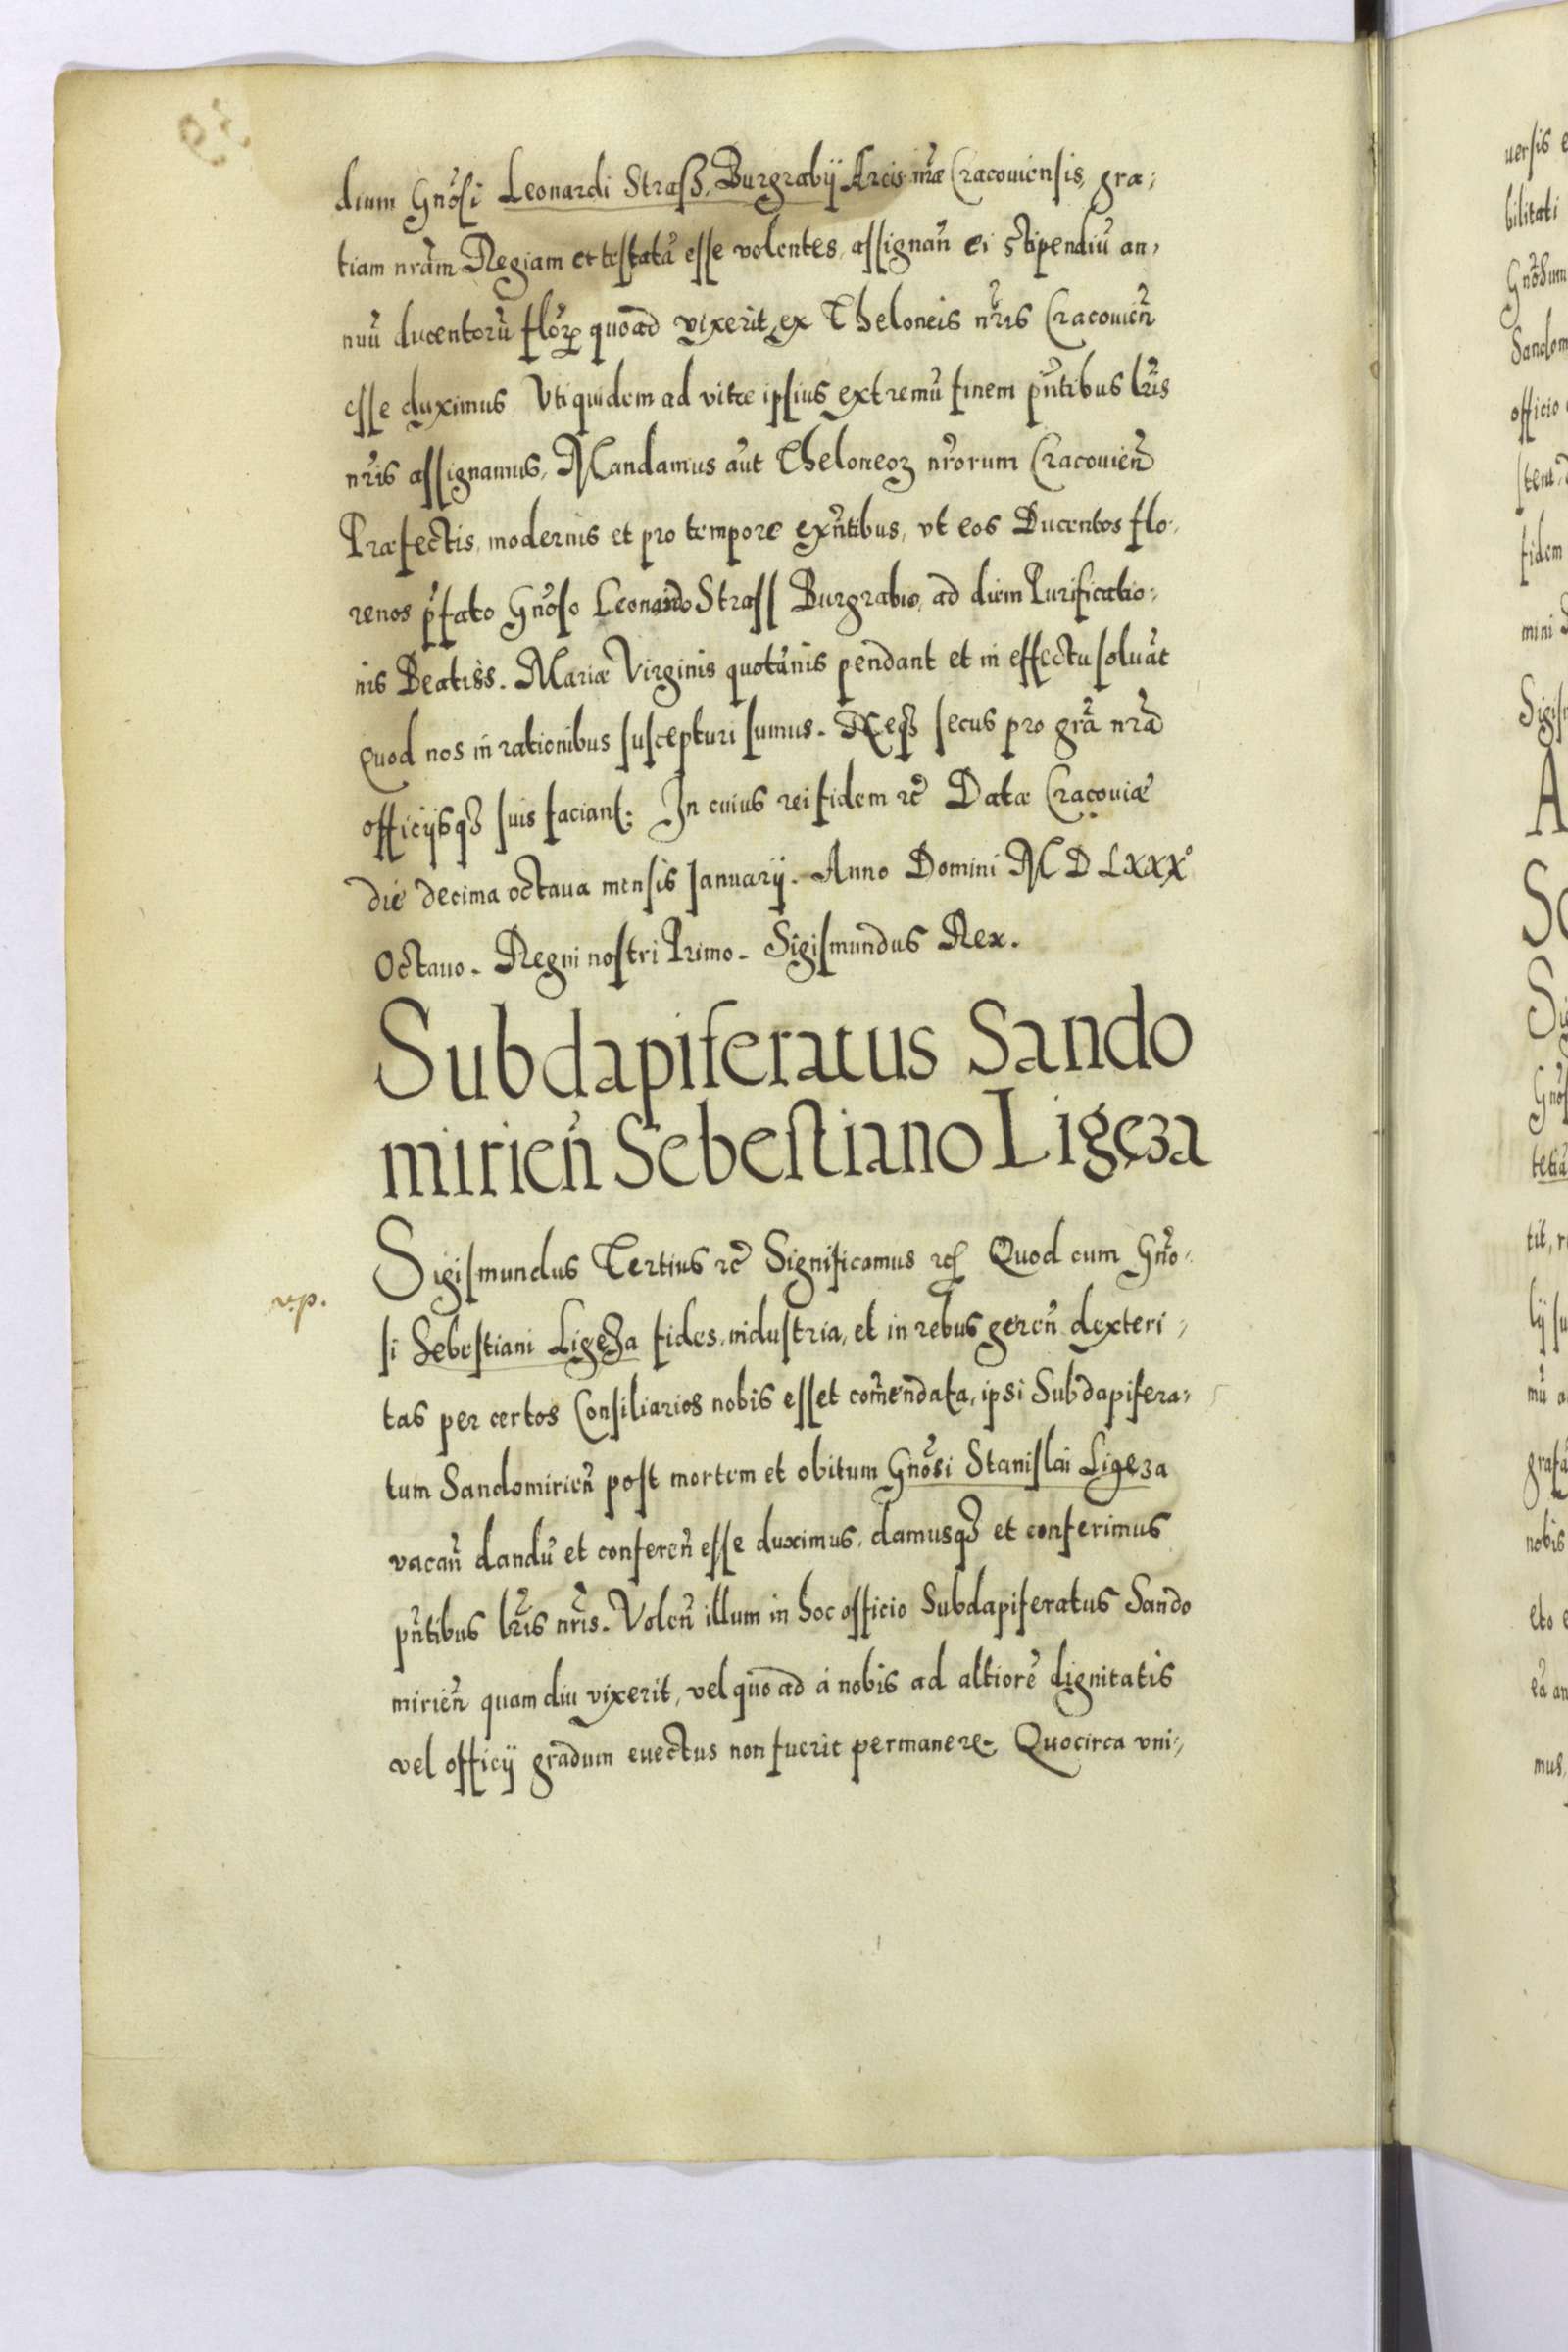 dium Gnosi Leonardi Straß, Burgrabij Arcis nræ Cracouiensis, gra:
tiam nram Regiam et testatã esse volentes, assignañ ei stipendiũ an,
nuũ ducentorũ florꝝ quoad vixerit, ex Theloneis nris Cracouieñ
esse duximus Vti quidem ad vitæ ipsius extremũ finem pñtibus lris
nris assignamus, Mandamus aut Theloneoꝝ nrorum Cracouieñ
Præfectis, modernis et pro tempore exñtibus, vt eos Ducentos flo-
renos pfato Gnoso Leonardo Strass Burgrabio, ad diem Purificatio:
nis Beatiss. Mariæ Virginis quotãnis pendant et in effectu soluãt
quod nos in rationibus suscepturi sumus. Neqꝫ secus pro grã nrã
officijsqꝫ suis faciant: In cuius rei fidem ꝛc Datæ Cracouiæ
die decima octaua mensis Januarij. Anno Domini M D LXXXº
Octauo. Regni nostri Primo. Sigismundus Rex.
Subdapiferatus Sando
mirieñ Sebestiano Ligęza
Sigismundus Tertius ꝛc Significamus ꝛc Quod cum Gño-
rp.
si Sebestiani Ligęza fides, industria, et in rebus gereñ dexteri,
tas per certos Consiliarios nobis esset comendata, ipsi Subdapifera,
tum Sandomirieñ post mortem et obitum Gnosi Stanislai Ligęza
vacañ dandũ et confereñ esse duximus, damusqꝫ et conferimus
pñtibus lris nris. Voleñ illum in hoc officio Subdapiferatus Sando
mirieñ quam diu vixerit, vel quo ad à nobis ad altiorẽ dignitatis
vel officij gradum euectus non fuerit permanere. Quocirca vni,